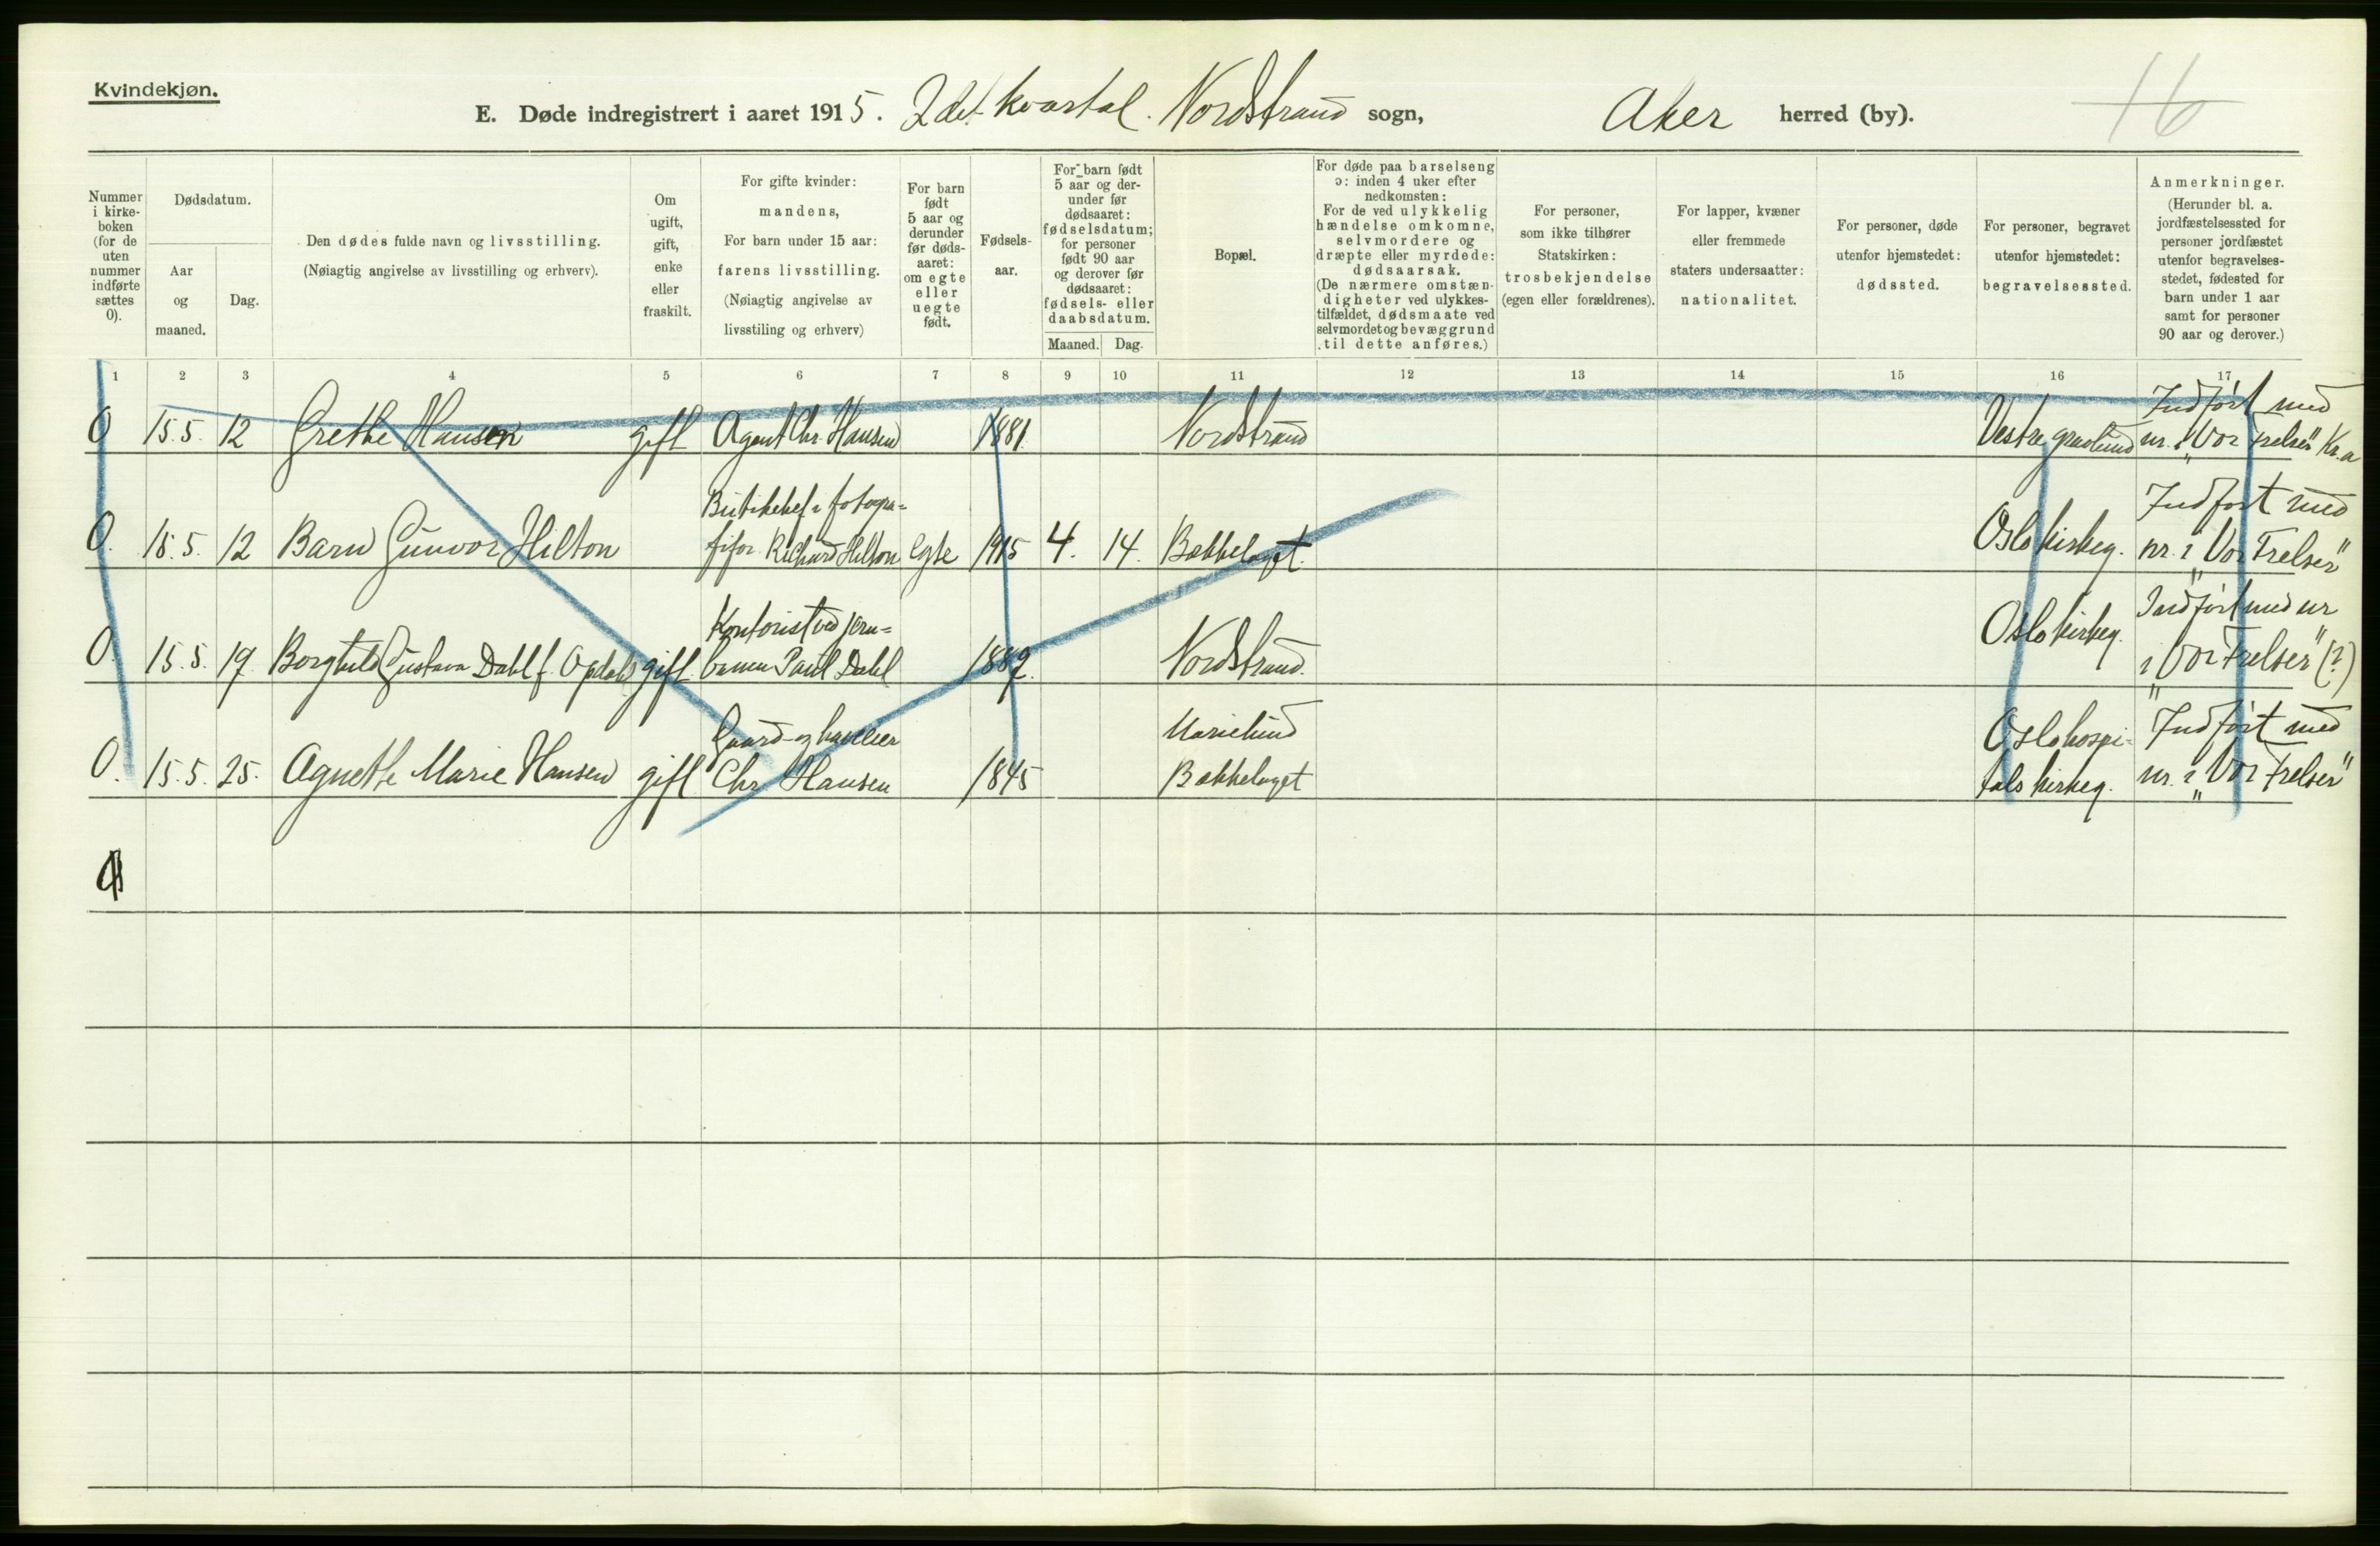 Kvindekjøn.
E. Døde indregistrert i aaret 1915. 2det kvartal. Nordstrand sogn, Aker herred (by).
16
Nummer
i kirke-
boken
(for de
uten
nummer
indførte
sættes
0).
Dødsdatum.
Aar
og
maaned.
Dag.
Den dødes fulde navn og livsstilling.
(Nøiagtig angivelse av livsstilling og erhverv).
Om
ugift,
gift,
enke
eller
fraskilt.
For gifte kvinder:
mandens,
For barn under 15 aar:
farens livsstilling.
(Nøiagtig angivelse av
livsstiling og erhverv)
For barn
født
5 aar og
derunder
før døds-
aaret:
om egte
eller
uegte
født.
Fødsels-
aar.
For barn født
5 aar og der-
under før
dødsaaret:
fødselsdatum;
for personer
født 90 aar
og derover før
dødsaaret:
fødsels- eller
daabsdatum.
Maaned. Dag.
Bopæl.
For døde paa barselseng
ɔ: inden 4 uker efter
nedkomsten:
For de ved ulykkelig
hændelse omkomne,
selvmordere og
dræpte eller myrdede:
dødsaarsak.
(De nærmere omstæn-
digheter ved ulykkes-
tilfældet, dødsmaate ved
selvmordet og bevæggrund
til dette anføres.)
For personer,
som ikke tilhører
Statskirken:
trosbekjendelse
(egen eller forældrenes).
For lapper, kvæner
eller fremmede
staters undersaatter:
nationalitet.
For personer, døde
utenfor hjemstedet:
dødssted.
For personer, begravet
utenfor hjemstedet:
begravelsessted.
Anmerkninger.
(Herunder bl. a.
jordfæstelsessted for
personer jordfæstet
utenfor begravelses-
stedet, fødested for
barn under 1 aar
samt for personer
90 aar og derover.)
1 2 3 4 5 6 7 8 9 10 11 12 13 14 15 16 17
Indført med
0 15.5. 12 Grethe Hansen gift Agent Chr. Hansen 1881. Nordstrand Vestre gravlund nr. i "Vor Frelser" Kr.a
fotogra= Indført med
0. 15.5. 12 Barn Gunvor Hilton Richard Hilton Egte 1915 4. 14. Bækkelaget. Oslo kirkeg. nr. i "Vor Frelser"
Kontorist ved jern= Indført med nr
0. 15.5. 19. Borghild Gustava Dahl f. Opdahl gift. banen Paul Dahl 1889. Nordstrand. Oslo kirkeg. i "Vor Frelser" (?)
Gaard- Marielund Oslo hospi= Indført med
0. 15.5. 25. Agnethe Marie Hansen gift Chr Hansen 1845 Bækkelaget tals kirkeg. nr. i "Vor Frelser"